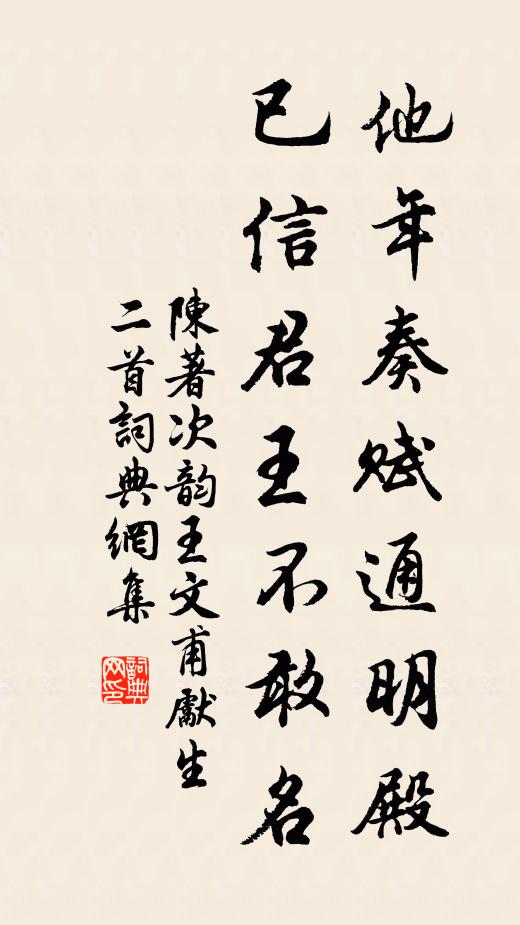 他年奏賦通明殿
已信君王不敢名
陳著次韵王文甫獻生
二首詞典網集
詞典网印